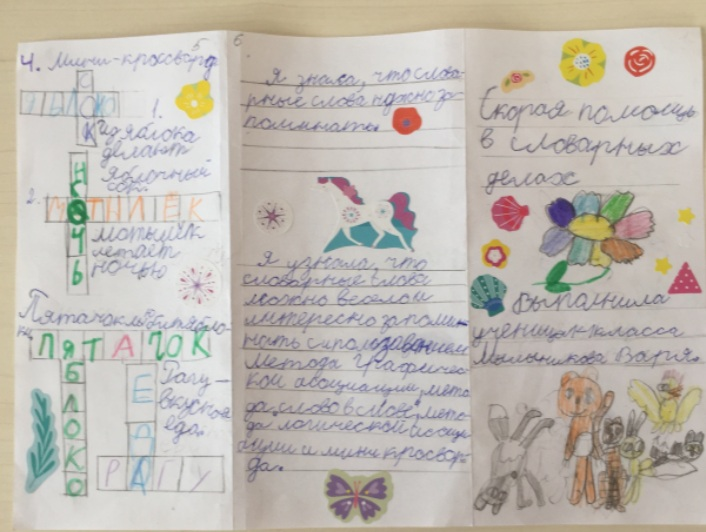 5
4. Мини-кроссворд
С
ЯБЛОКО
К
1.
Из яблока
делают
яблочный
сок.
2.
НОЧЬ
МОТЫЛЁК
мотылёк
летает
ночью
Пятачок любит яблоки
ПЯТАЧОК
ЯБЛОКО
ЕДА
РАГУ
Рагу –
вкусная
еда.
6
Я знала, что слова-
рные слова нужно за-
поминать.
Я узнала, что
словарные слова
можно весело и
интересно запоми-
нать с использованием
метода графичес-
кой ассоциации, мето-
да „слово в слове", мето-
да логической ассоци-
ации и мини кроссвор-
да.
Скорая помощь
в словарных
делах
Выполнила
ученица класса
Мельникова Варя.